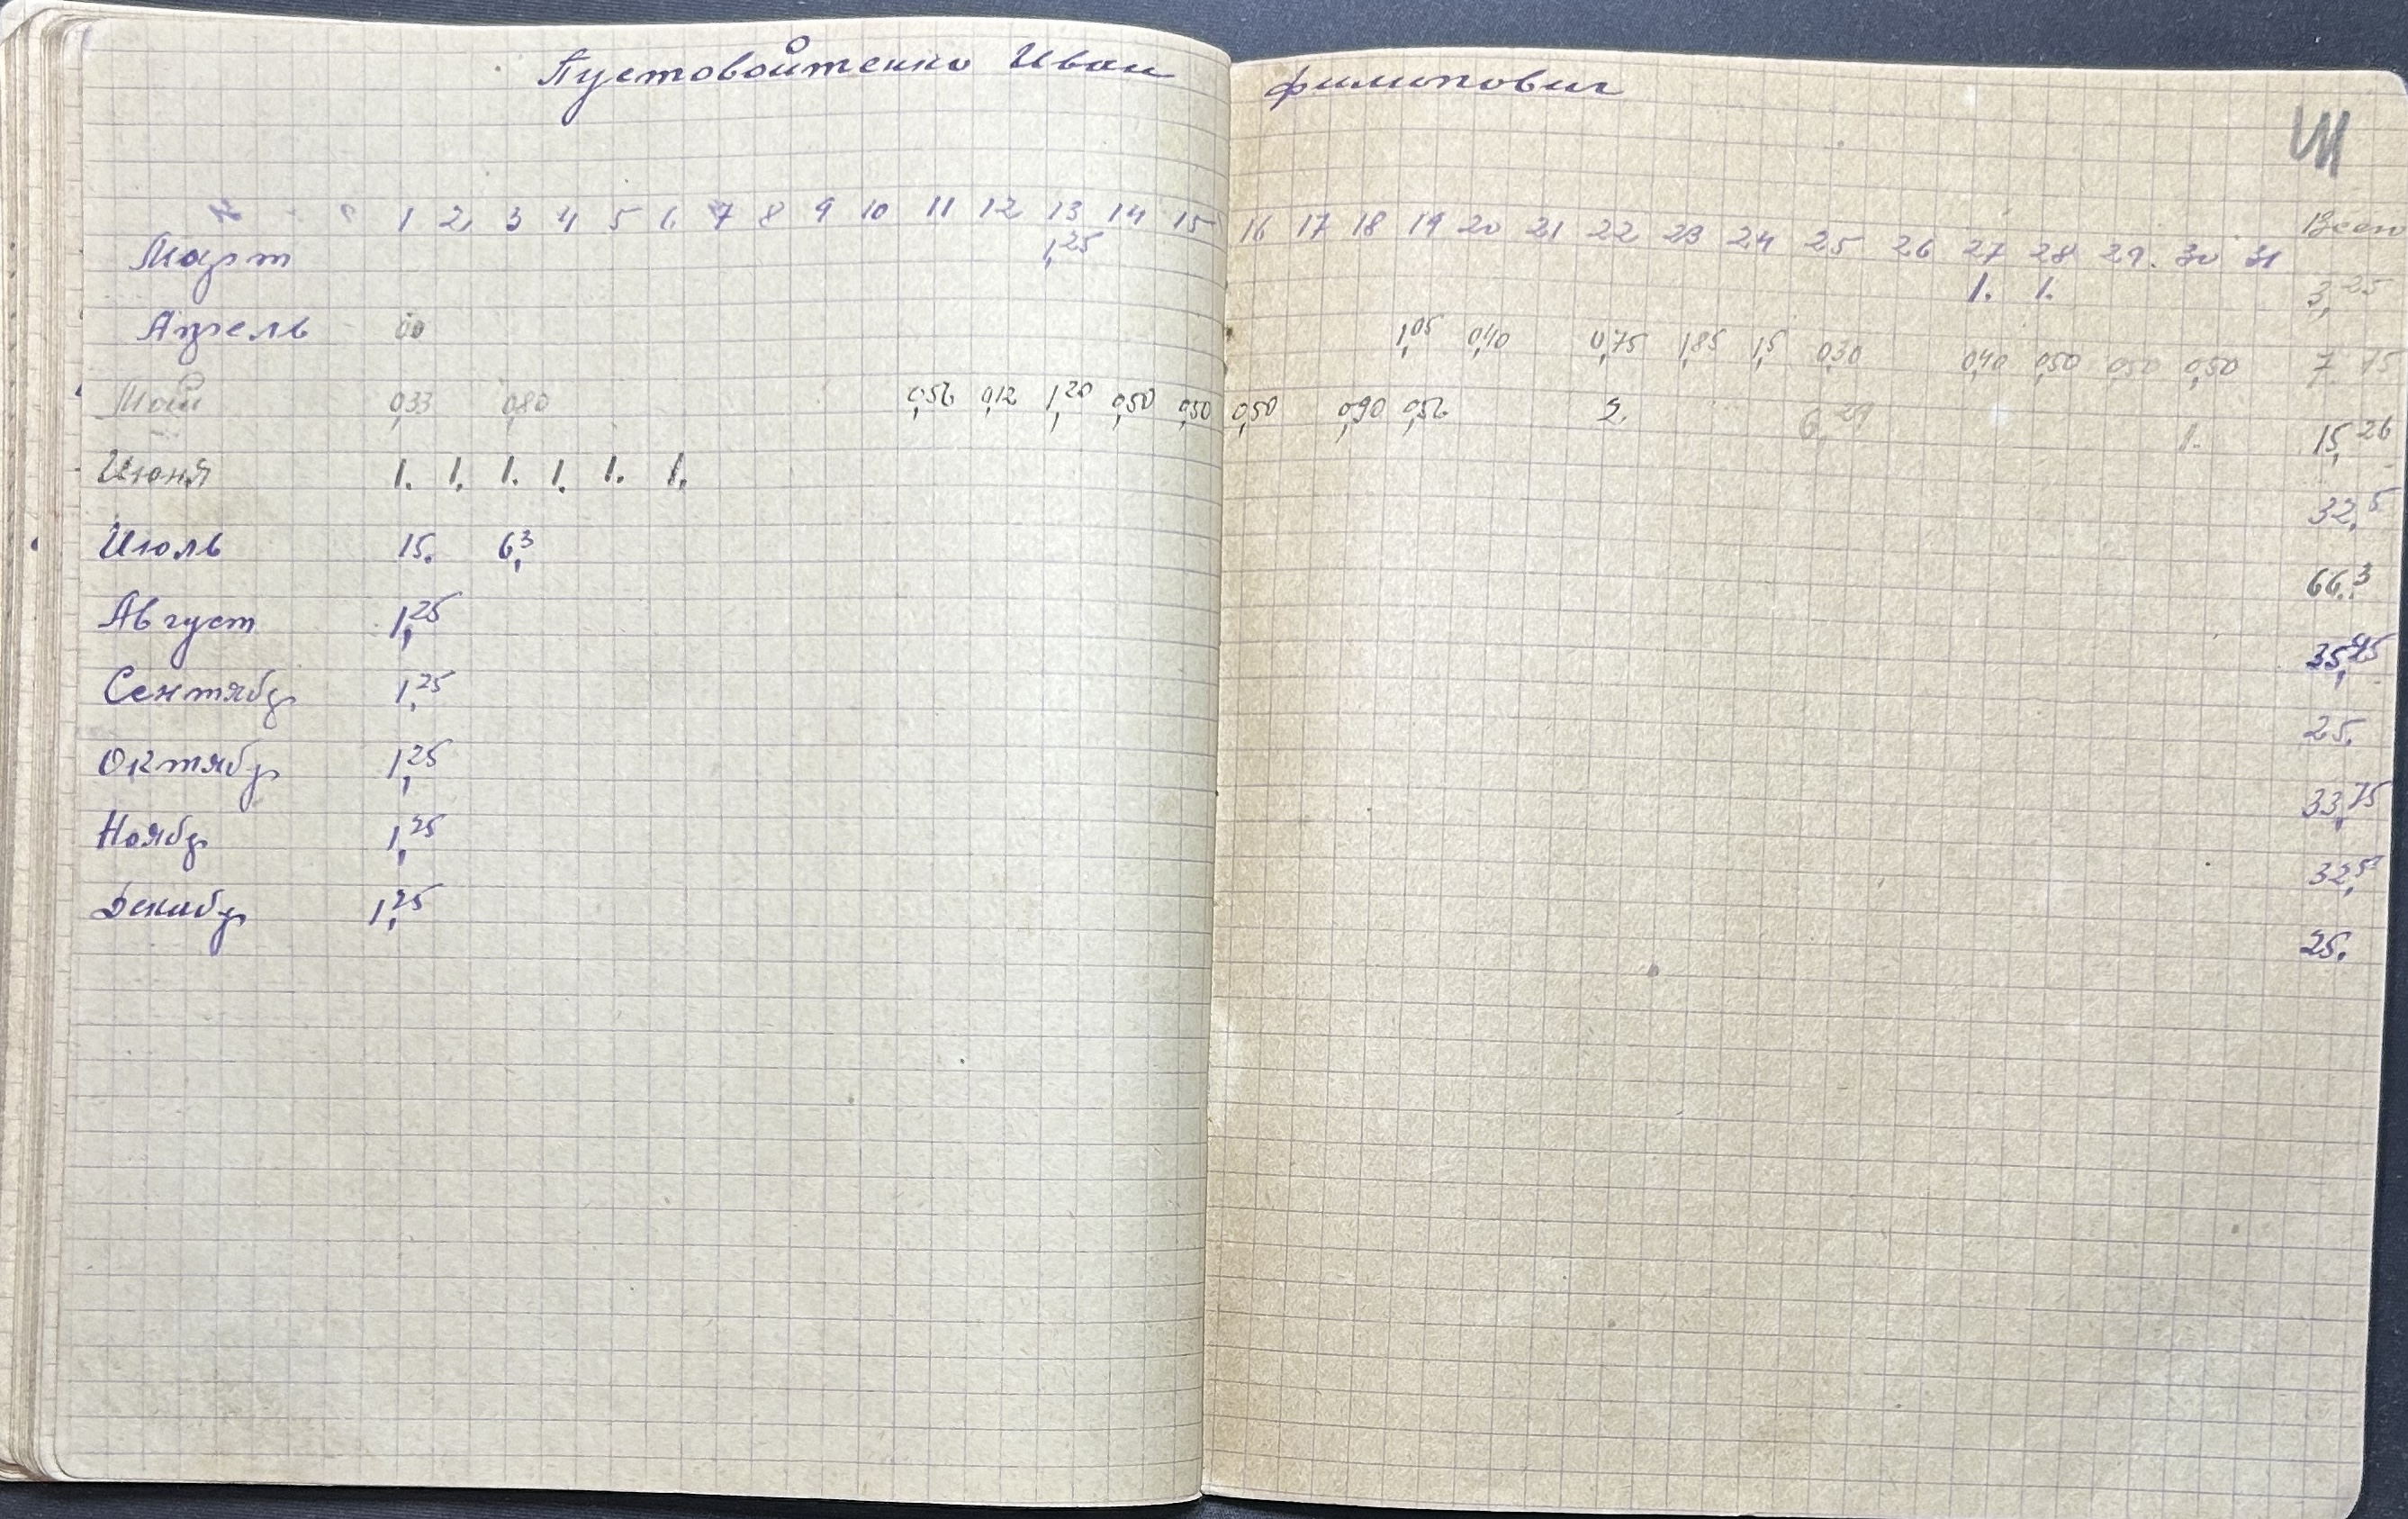 Пустовойтенко Иван Филипович
Ш
1 2 3 4 5 6 7 8 9 10 11 12 13 14 15 16 17 18 19 20 21 22 23 24 25 26 27 28 29 30 31 Всего
Март 1,25 1. 1. 3,25
Апрель 1,05 0,40 0,75 1,85 1,5 0,30 0,40 0,50 0,50 0,50 7,75
Май 0,33 0,80 0,56 0,12 1,20 0,50 0,50 0,50 0,90 0,56 2. 6,29 1. 15,26
Июня 1. 1. 1. 1. 1. 1. 32,5
Июль 15. 6,3 66,3
Август 1,25 35,95
Сентябр 1,25 25.
Октябр 1,25 33,75
Ноябр 1,25 32,5
Декабр 1,25 25.